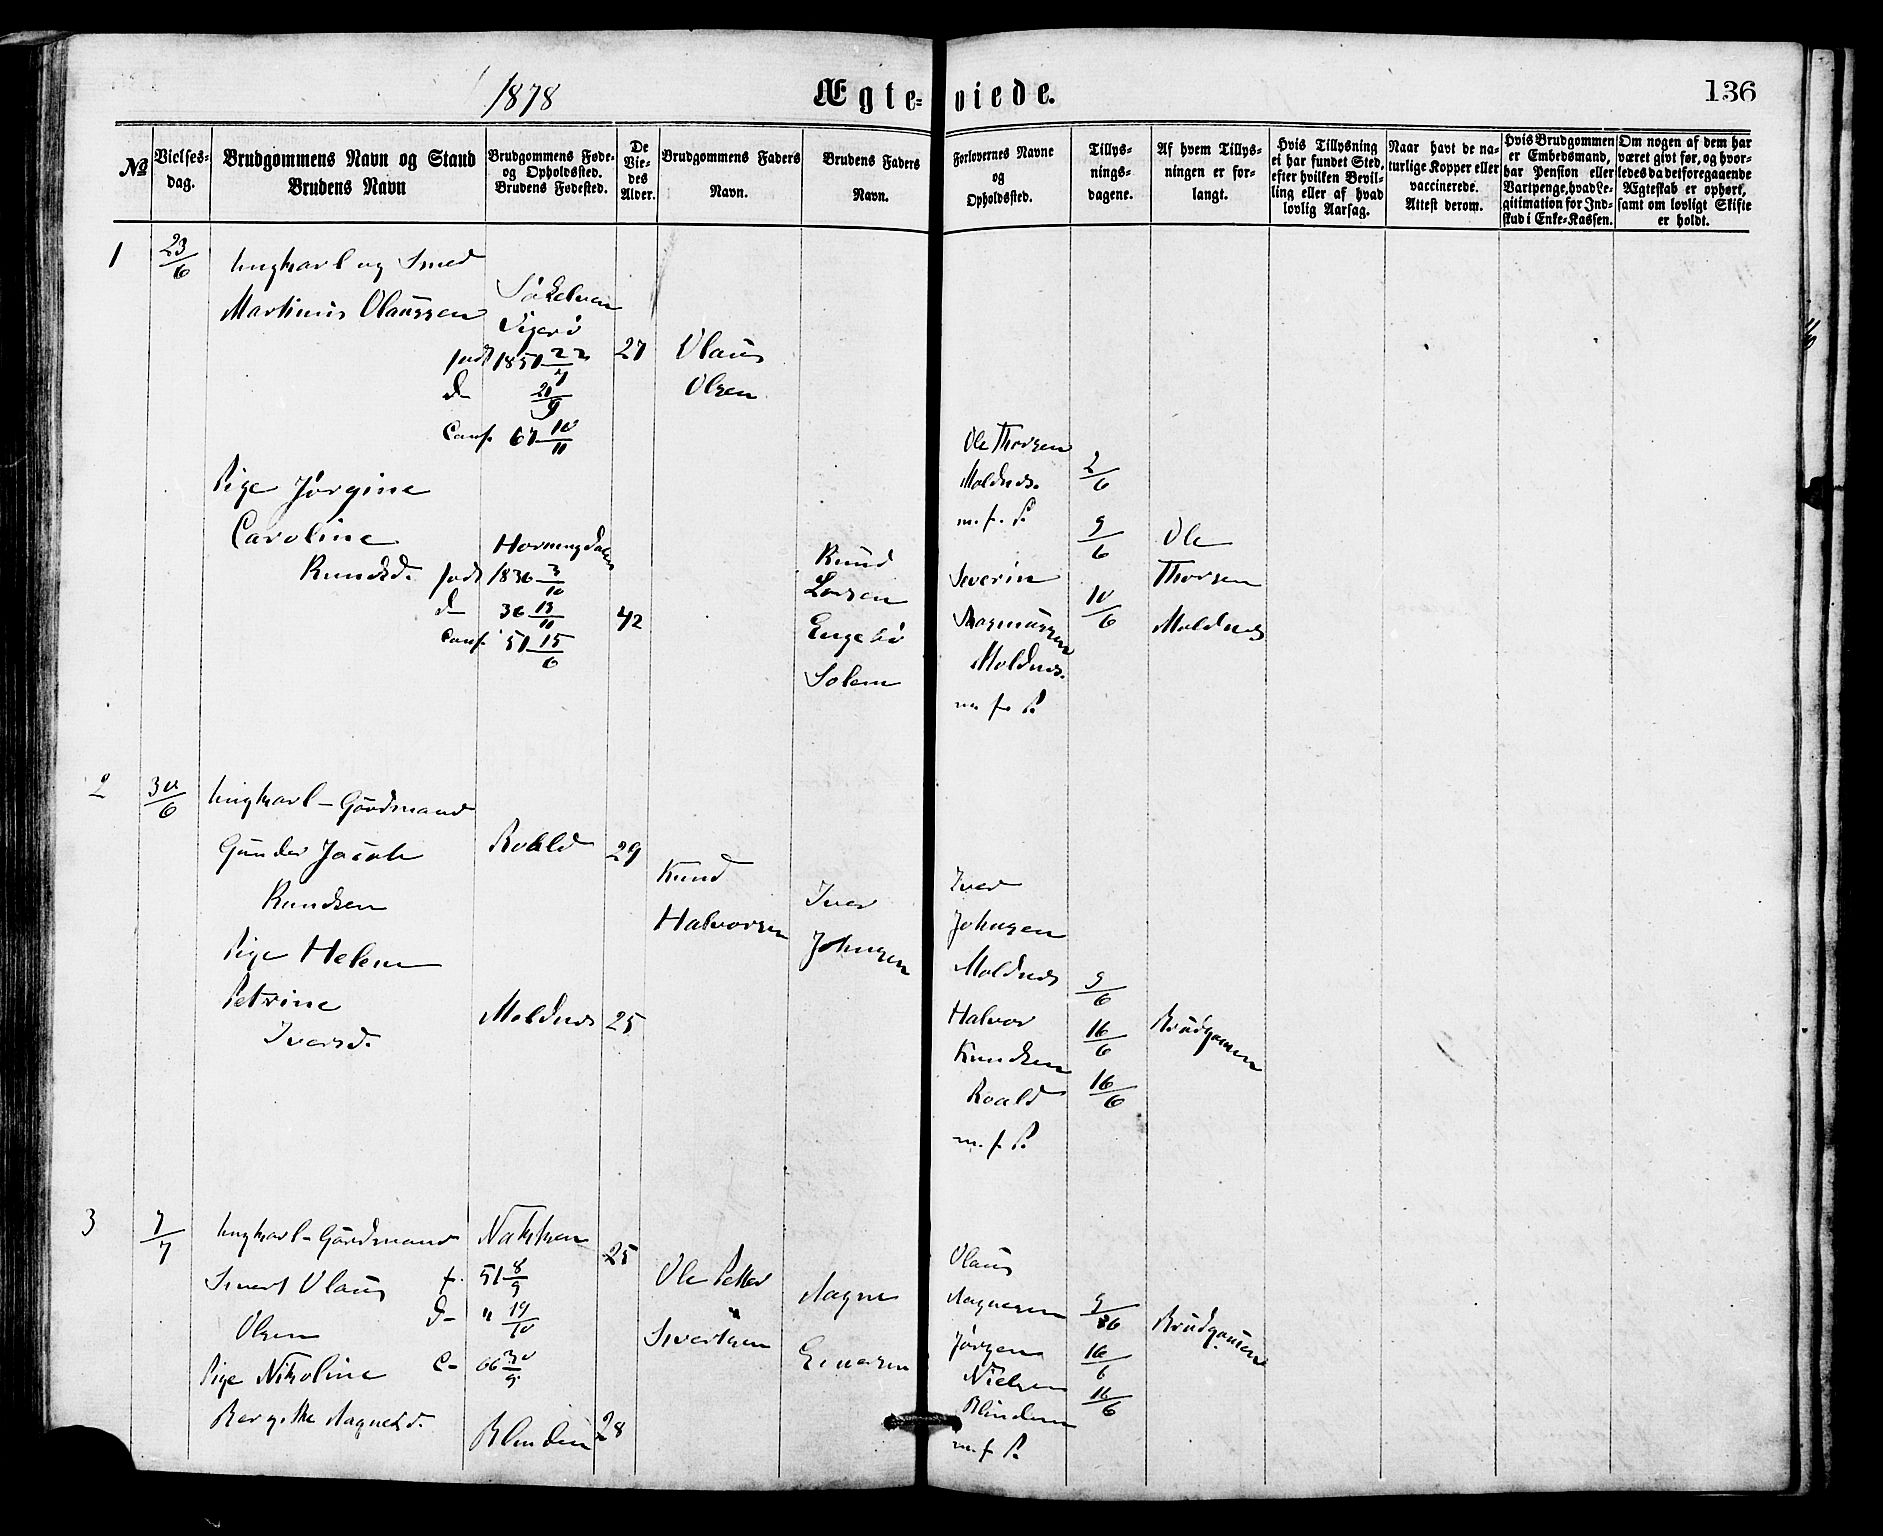 1878
Ægte-viede.
136
No
Vielses-
dag.
Brudgommens Navn og Stand
Brudens Navn
Brudgommens Føde-
og Opholdssted.
Brudens Fødested.
De
Vie-
des
Alder.
Brudgommens Faders
Navn.
Brudens Faders
Navn.
Forlovernes Navne
og
Opholdssted.
Tillys-
nings-
dagene.
Af hvem Tillys-
ningen er for-
langt.
Hvis Tillysning
ei har fundet Sted,
efter hvilken Bevil-
ling eller af hvad
lovlig Aarsag.
Naar havt de na-
turlige Kopper eller
vaccinerede.
Attest derom.
Hvis Brudgommen
er Embedsmand,
har Pension eller
Vartpenge, hvad Le-
gitimation for Ind-
skud i Enke-Kassen.
Om nogen af dem har
været givt før, og hvor-
ledes da det foregaaende
Ægteskab er ophørt,
samt om lovligt Skifte
er holdt.
1
23/6
Ungkarl og Smed
Martinus Olaussen
født 1851 22/7
d- 21/9
Conf. 67 10/11
27
Olaus
Olsen
Pige Jørgine
Caroline
Knudsd.
Horningdalen
født 1836 3/10
d- 36 13/11
Conf. 51 15/6
42
Knud
Larsen
Engebø
Solem
Ole Thorsen
Moldnes.
m. f. P.
Severin
Rasmussen
Moldnes.
m. f. P.
2/6
9/6
10/6
Ole
Thorsen
Moldnes
2
30/6
Ungkarl - Gaardmand
Gunder Jacob
Knudsen
Roald
29
Knud
Halvorsen
Pige Helene
Petrine
Iversd.
Moldnes
25
Iver
Johnsen
Iver
Johnsen
Moldnes
Halvor
Knudsen
Roald
m. f. P.
9/6
16/6
16/6
Brudgomen
3
7/7
Ungkarl - Gaardmand
Sivert Olaus
Olsen
Nakken
f. 51 8/9
d- " 19/10
C- 66 30/9
25
Ole Petter
Sivertsen
Pige Nikoline
Bergitte Aagnesd.
Blindem
28
Aagne
Einersen
Olaus
Aagnesen
Jørgen
Nielsen
Blindem
m. f. P.
9/6
16/6
16/6
Brudgomen